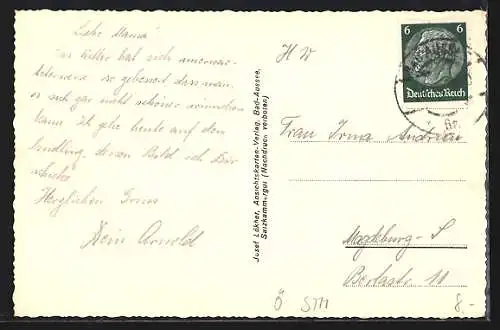 Liebe Mama!
das Wetter hat sich
so gebessert dass man
es sich gar nicht schöner wünschen
kann. Ich gehe heute auf den
Sandling, dessen Bild ich Dir
schicke
Herzlichen Gruss
Dein Arnold
Josef Lökher, Ansichtskarten-Verlag, Bad-Aussee,
Salzkammergut (Nachdruck verboten)
H W
6 6
Deutsches Reich
Frau Irma Andrian
Magdeburg-S
11
Ö STM
8.-